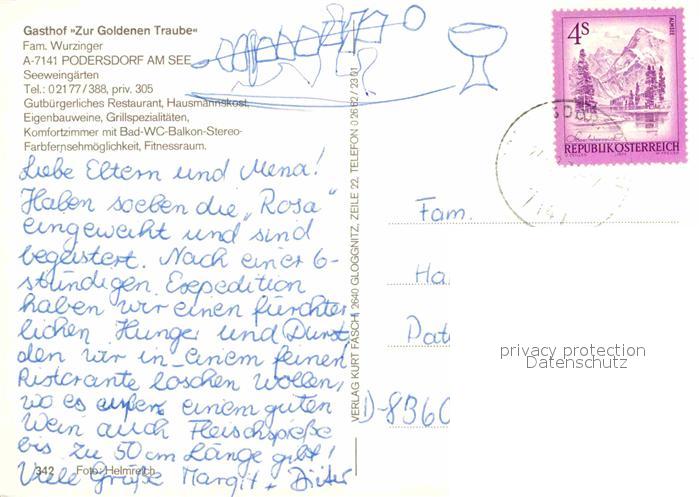 Gasthof »Zur Goldenen Traube«
Fam. Wurzinger
A-7141 PODERSDORF AM SEE
Seeweingärten
Tel.: 0 21 77 / 388, priv. 305
Gutbürgerliches Restaurant, Hausmannskost,
Eigenbauweine, Grillspezialitäten,
Komfortzimmer mit Bad-WC-Balkon-Stereo-
Farbfernsehmöglichkeit, Fitnessraum.
Liebe Eltern und Mena!
Haben soeben die „Rosa"
eingeweiht und sind
begeistert. Nach einer 6-
stündigen Expedition
haben wir einen fürchter
lichen Hunger und Durst,
den wir in einem feinen
Ristorante löschen wollen,
wo es außer einem guten
Wein auch Fleischspieße
bis zu 50 cm Länge gibt!
Viele Grüße Margit + Dieter
342 Foto: Helmreich
VERLAG KURT FASCHING, 2640 GLOGGNITZ, ZEILE 22, TELEFON 0 26 62 / 23 01
4S
ALMSEE
REPUBLIK ÖSTERREICH
Fam.
Ha
Dat
D-8360
privacy protection
Datenschutz